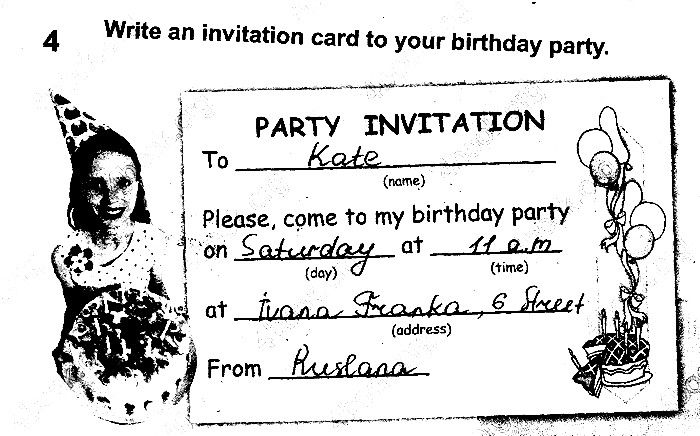 4 Write an invitation card to your birthday party.
PARTY INVITATION
To Kate
(name)
Please, come to my birthday party
on Saturday at 11 a.m
(day) (time)
at Ivana Franka, 6 Street
(address)
From Ruslana